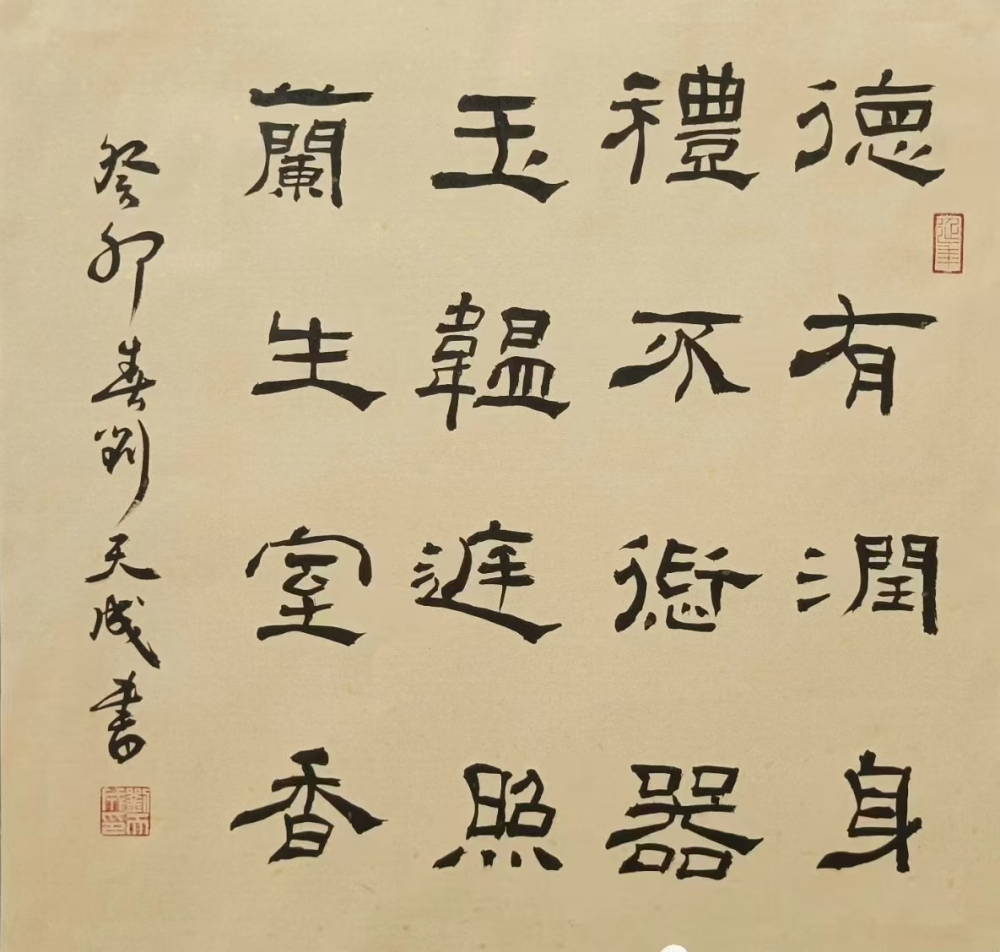 德有潤身
禮不愆器
玉韞庭照
蘭生室香
癸卯春劉天成書
劉天成印